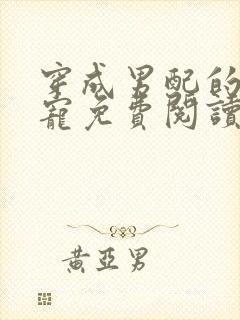 穿成男配的
寵免費閱讀
黃亞男